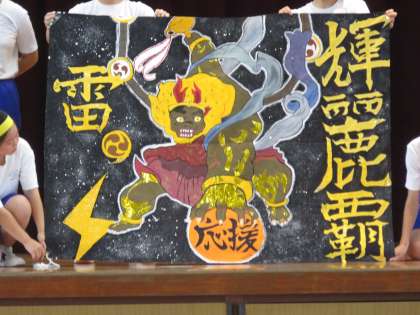 輝麗覇
雷
応援